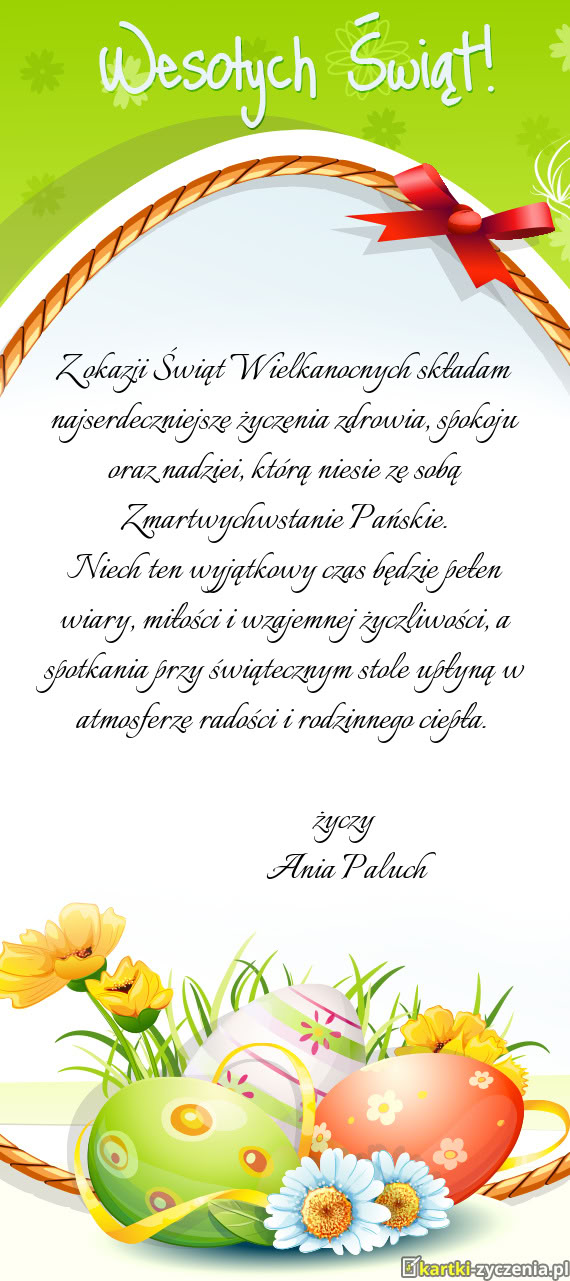 Wesołych Świąt!
Z okazji Świąt Wielkanocnych składam
najserdeczniejsze życzenia zdrowia, spokoju
oraz nadziei, którą niesie ze sobą
Zmartwychwstanie Pańskie.
Niech ten wyjątkowy czas będzie pełen
wiary, miłości i wzajemnej życzliwości, a
spotkania przy świątecznym stole upłyną w
atmosferze radości i rodzinnego ciepła.
życzy
Ania Paluch
kartki-zyczenia.pl